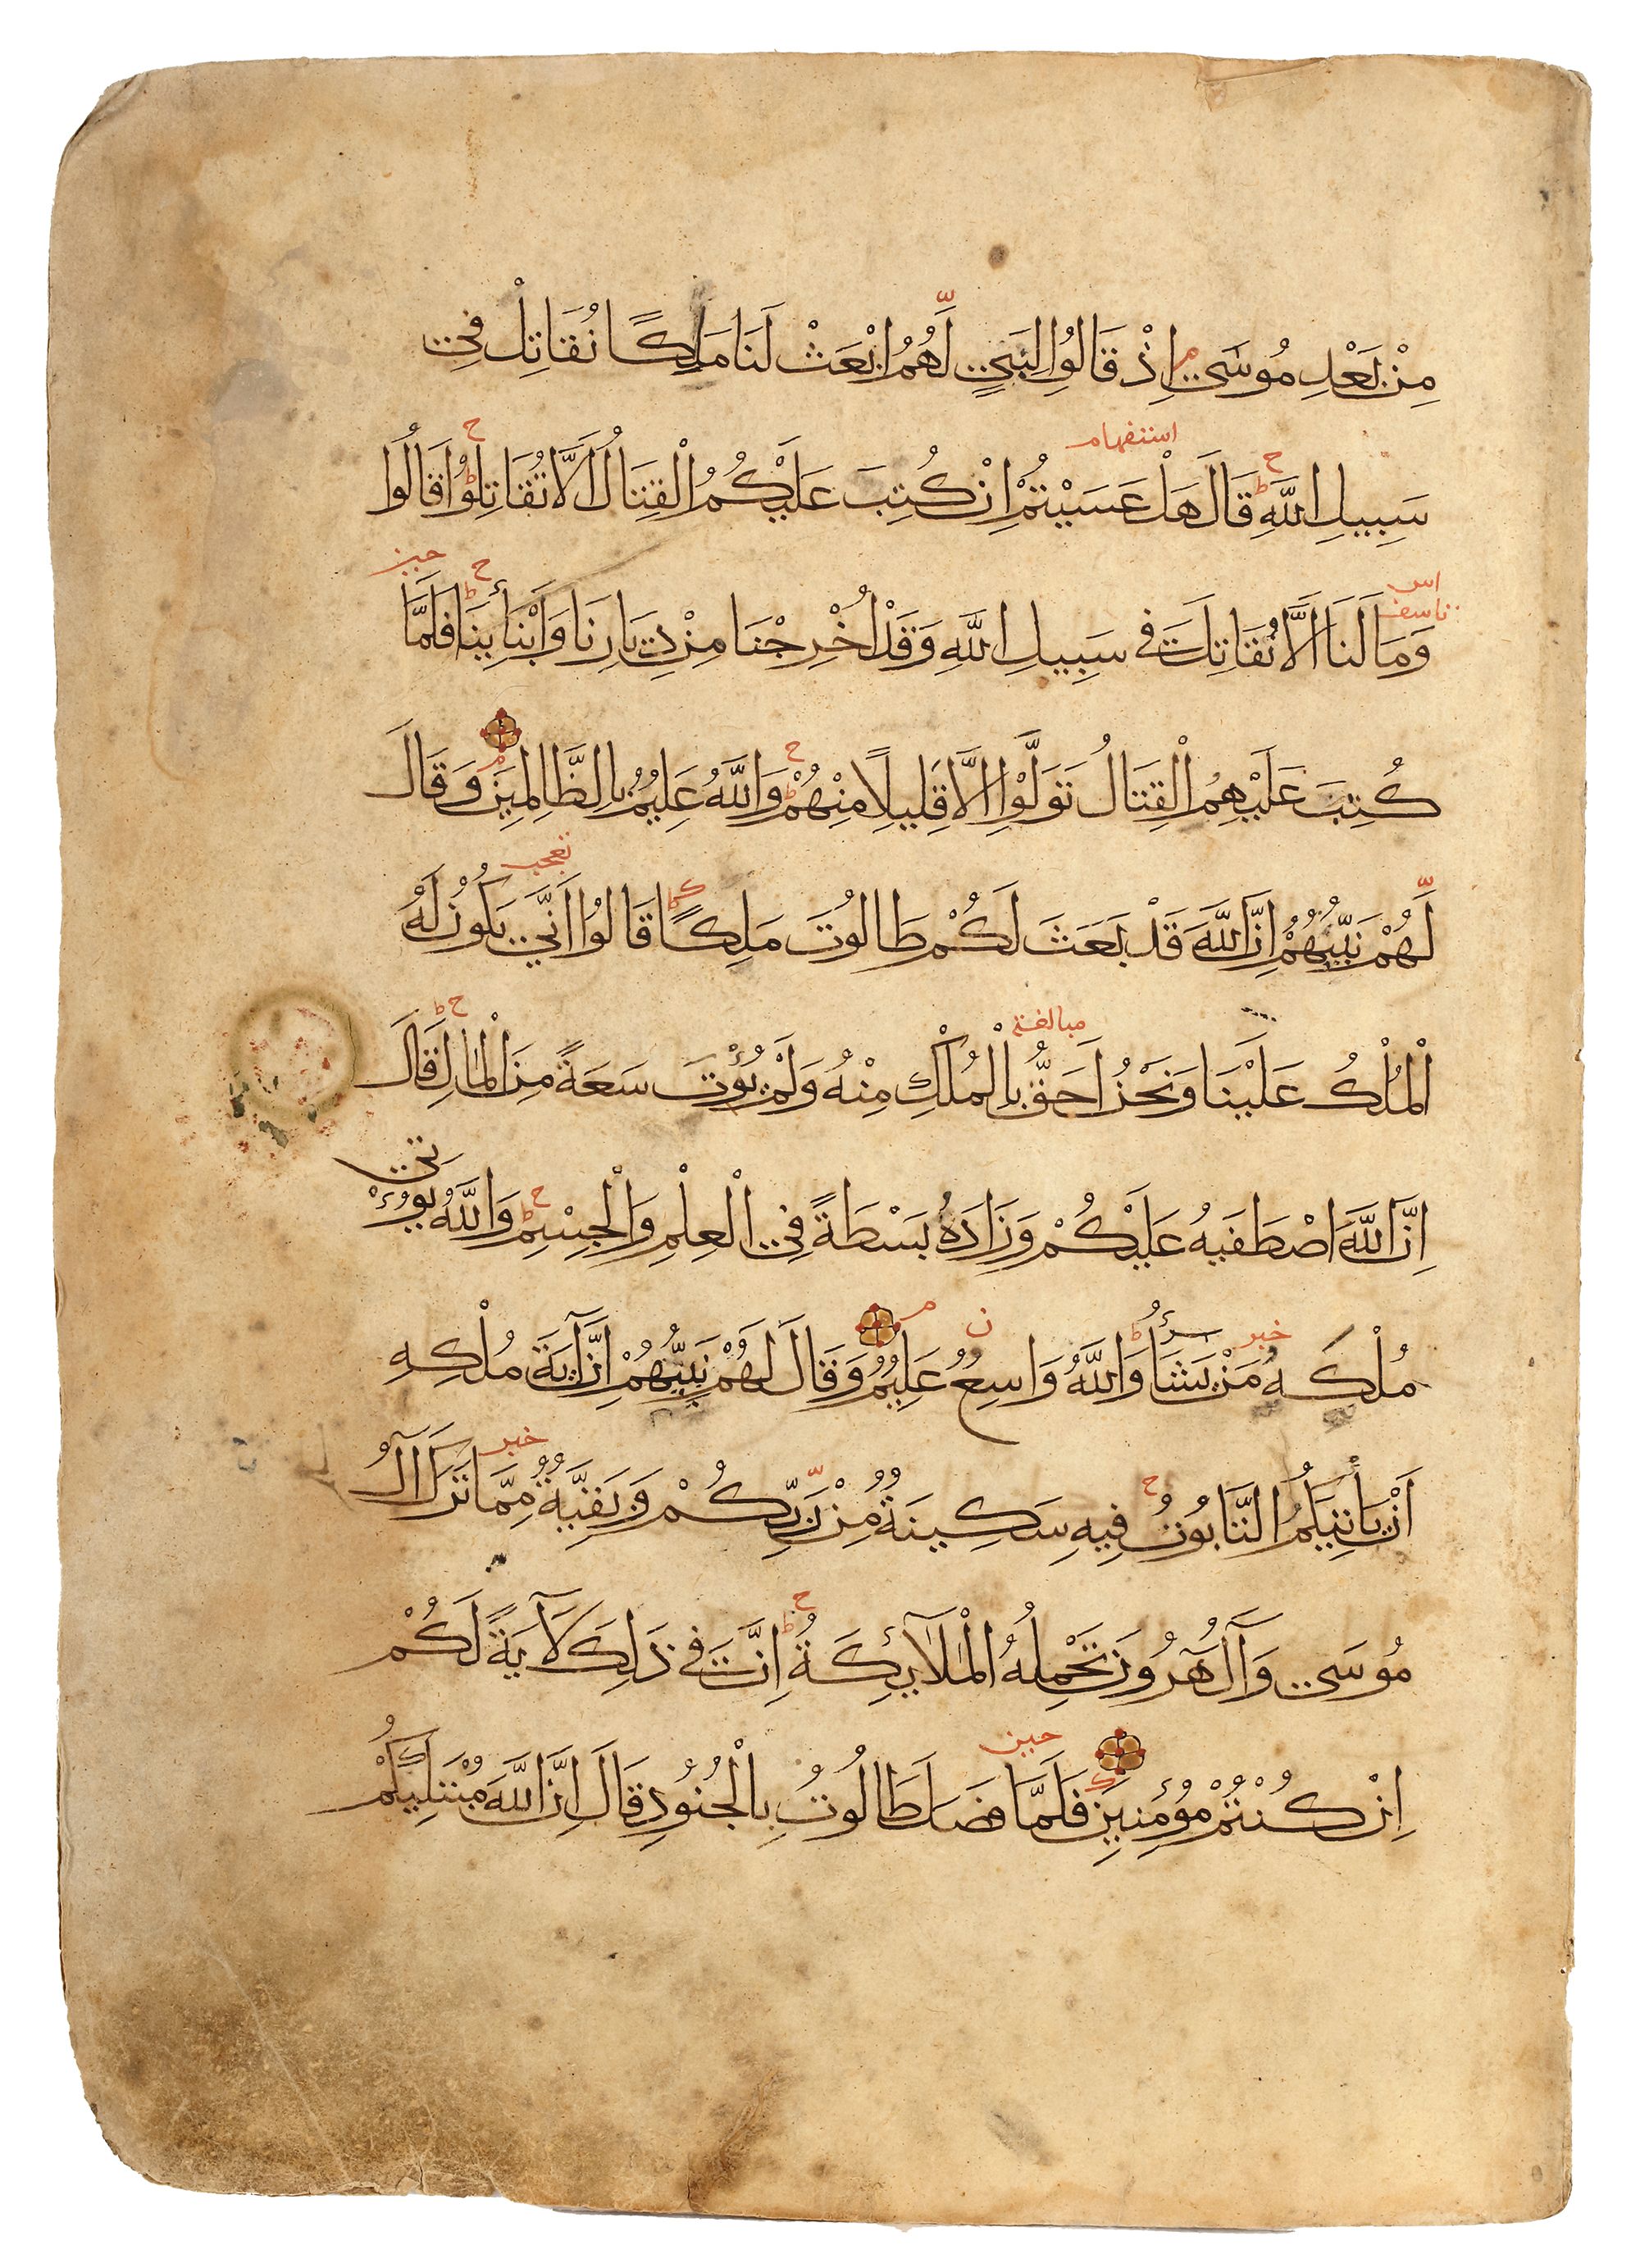 مِنْ بَعْدِ مُوسَى اِذْ قَالُوا لِنَبِيٍّ لَّهُمُ ابْعَثْ لَنَا مَلِكًا نُقَاتِلْ فِي
استفهام
سَبِيلِ اللَّهِ قَالَ هَلْ عَسَيْتُمْ اِنْ كُتِبَ عَلَيْكُمُ الْقِتَالُ اَلَّا تُقَاتِلُوْا قَالُوا
اس تاسف حين
وَمَا لَنَا اَلَّا نُقَاتِلَ فِي سَبِيلِ اللَّهِ وَقَدْ اُخْرِجْنَا مِنْ دِيَارِنَا وَاَبْنَائِنَا فَلَمَّا
كُتِبَ عَلَيْهِمُ الْقِتَالُ تَوَلَّوْا اِلَّا قَلِيلًا مِنْهُمْ وَاللَّهُ عَلِيمٌ بِالظَّالِمِينَ وَقَالَ
تعجب
لَّهُمْ نَبِيُّهُمْ اِنَّ اللَّهَ قَدْ بَعَثَ لَكُمْ طَالُوتَ مَلِكًا قَالُوا اَنَّى يَكُونُ لَهُ
مبالغة
الْمُلْكُ عَلَيْنَا وَنَحْنُ اَحَقُّ بِالْمُلْكِ مِنْهُ وَلَمْ يُؤْتَ سَعَةً مِنَ الْمَالِ قَالَ
اِنَّ اللَّهَ اصْطَفَيهُ عَلَيْكُمْ وَزَادَهُ بَسْطَةً فِي الْعِلْمِ وَالْجِسْمِ وَاللَّهُ يُؤْتِي
خبر
مُلْكَهُ مَنْ يَشَاءُ وَاللَّهُ وَاسِعٌ عَلِيمٌ وَقَالَ لَهُمْ نَبِيُّهُمْ اِنَّ آيَةَ مُلْكِهِ
خبر
اَنْ يَأْتِيَكُمُ التَّابُوتُ فِيهِ سَكِينَةٌ مِنْ رَّبِّكُمْ وَبَقِيَّةٌ مِمَّا تَرَكَ آلُ
مُوسَى وَآلُ هَرُونَ تَحْمِلُهُ الْمَلَآئِكَةُ اِنَّ فِي ذَلِكَ لَآيَةً لَكُمْ
حين
اِنْ كُنْتُمْ مُؤْمِنِينَ فَلَمَّا فَصَلَ طَالُوتُ بِالْجُنُودِ قَالَ اِنَّ اللَّهَ مُبْتَلِيكُمْ